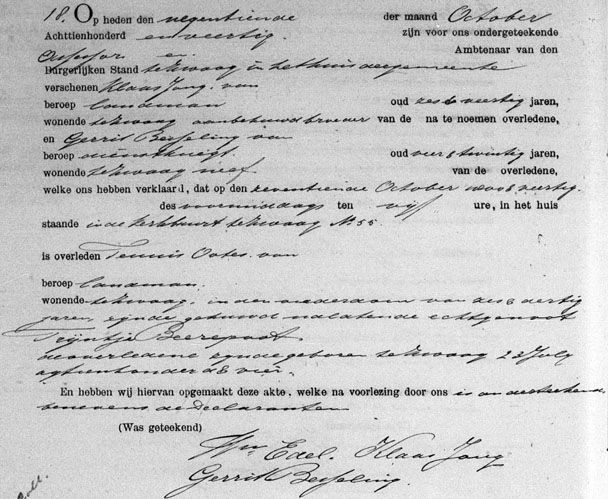 18. Op heden den negentiende der maand October
Achttienhonderd en veertig. zijn voor ons ondergeteekente
Assessor en Ambtenaar van den
Burgerlijken Stand te Kwaag in het huis der gemeente
verschenen Klaas Jong van
beroep landman oud zes & veertig jaren,
wonende te Kwaag aanbehuwd broeder van de na te noemen overledene,
en Gerrit Besseling van
beroep dienstknegt. oud vier & twintig jaren,
wonende te Kwaag neef van de overledene,
welke ons hebben verklaard, dat op den zeventiende October & veertig.
des voormiddags ten vijf ure, in het huis
staande in de Kerkbuurt te Kwaag No 55
is overleden Teunis Ootes. van
beroep landman.
wonende te Kwaag. in den ouderdom van zes & dertig
jaren, zijnde gehuwd nalatende echtgenoot
Trijntje Beerepoot
de overledene zijnde geboren te Kwaag 23 July
agtienhonderd & vier.
En hebben wij hiervan opgemaakt deze akte, welke na voorlezing door ons is onderteekend,
benevens de Declaranten
(Was geteekend)
Wm Edel. Klaas Jong
Gerrit Besseling.